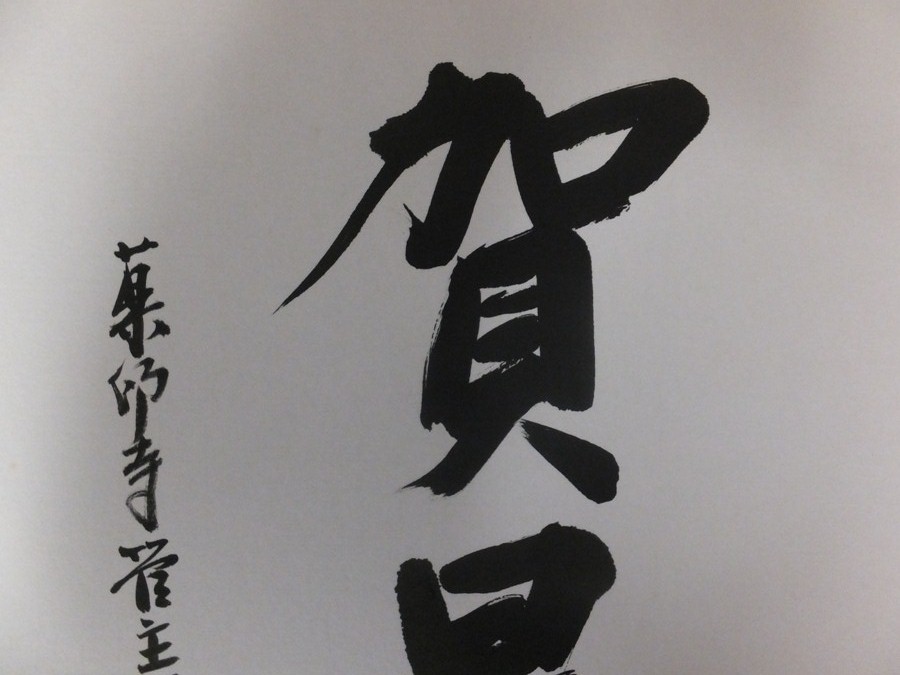 賀
薬師寺管主